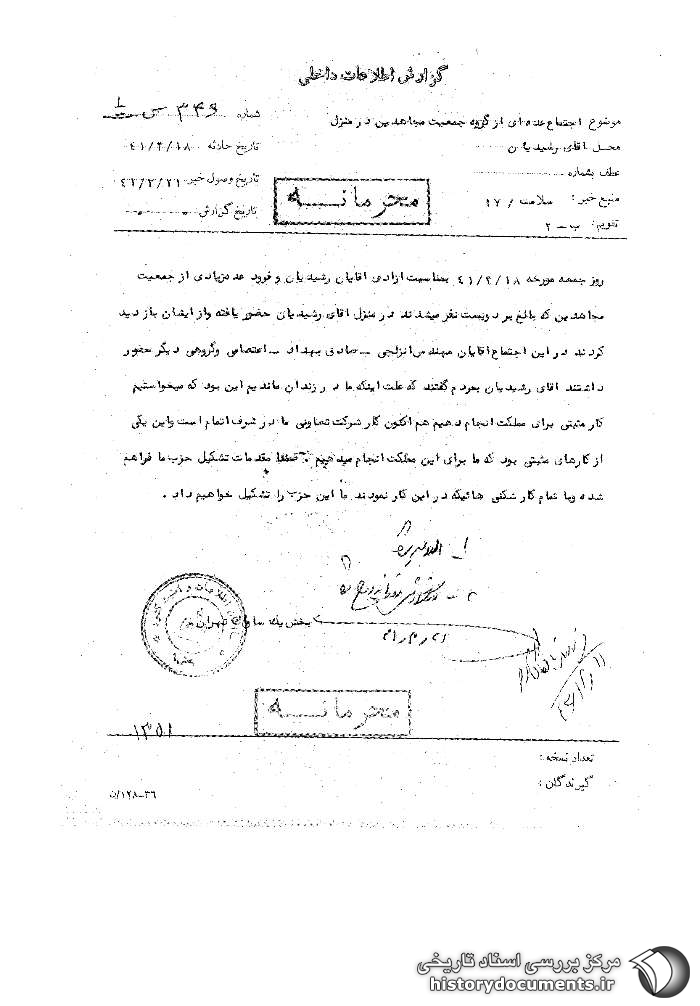 گزارش اطلاعات داخلی
موضوع اجتماع عده ای از گروه جمعیت مجاهدین در منزل
شماره ۳۴۶ س
محل آقای رشیدیان
تاریخ حادثه ۴۱/۲/۱۸
عطف بشماره
تاریخ وصول خبر ۴۱/۲/۲۱
منبع خبر: سلامت / ۱۷
تاریخ گزارش
تقویم: ب - ۲
محرمانه
روز جمعه مورخه ۴۱/۲/۱۸ بمناسبت ازادی اقایان رشیدیان و فرود عده زیادی از جمعیت
مجاهدین که بالغ بر دویست نفر میشدند در منزل اقای رشیدیان حضور یافته واز ایشان بازدید
کردند در این اجتماع اقایان مهندس انزلچی - صادق بهداد - اعتصامی وگروهی دیگر حضور
داشتند اقای رشیدیان بمردم گفتند که علت اینکه ما در زندان ماندیم این بود که میخواستیم
کار مثبتی برای مملکت انجام دهیم هم اکنون کار شرکت تعاونی ما در شرف اتمام است واین یکی
از کارهای مثبتی بود که ما برای این مملکت انجام میدهیم مقدمات تشکیل حزب ما فراهم
شده وبا تمام کار شکنی هائیکه در این کار نمودند ما این حزب را تشکیل خواهیم داد.
بخش یک ساواک تهران
محرمانه
۱۳۵۱
تعداد نسخه:
گیرندگان:
۳۶-۱۲۸/ن
مرکز بررسی اسناد تاریخی
historydocuments.ir